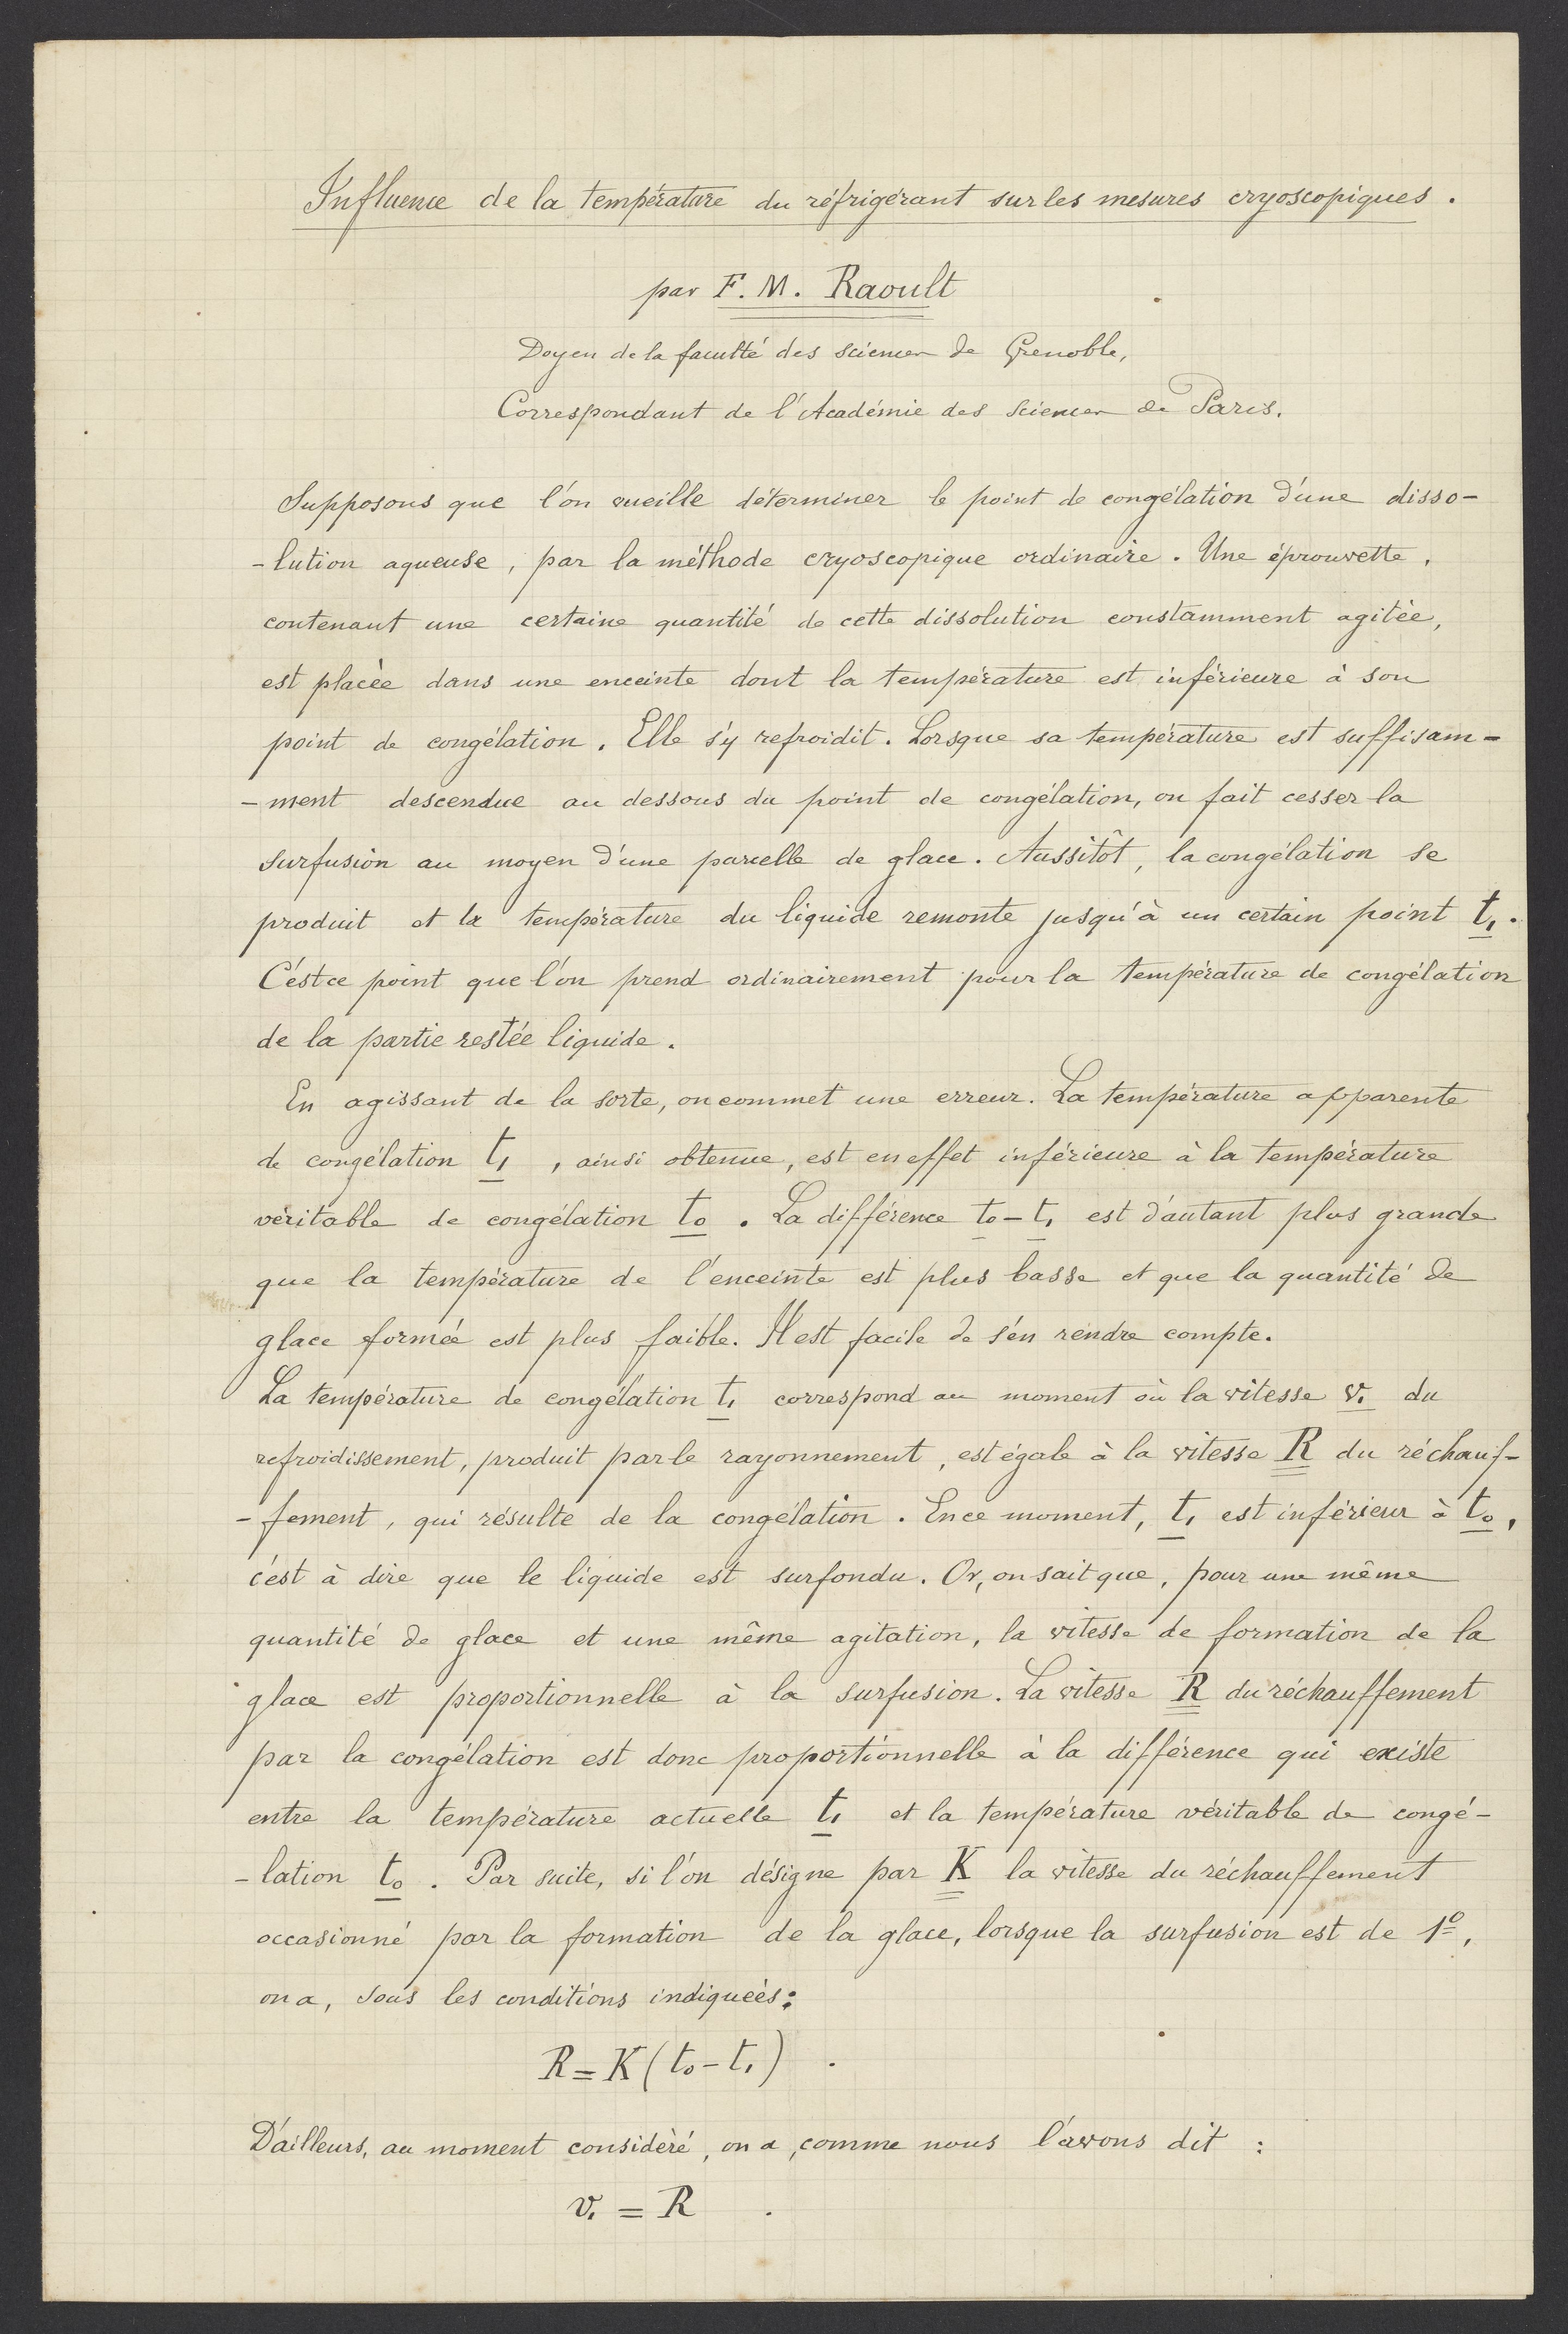 Influence de la température du réfrigérant sur les mesures cryoscopiques.
par F. M. Raoult
Doyen de la faculté des sciences de Grenoble,
Correspondant de l'Académie des Sciences de Paris.
Supposons que l'on veuille déterminer le point de congélation d'une disso-
-lution aqueuse, par la méthode cryoscopique ordinaire. Une éprouvette,
contenant une certaine quantité de cette dissolution constamment agitée,
est placée dans une enceinte dont la température est inférieure à son
point de congélation. Elle s'y refroidit. Lorsque sa température est suffisam-
-ment descendue au dessous du point de congélation, on fait cesser la
surfusion au moyen d'une parcelle de glace. Aussitôt, la congélation se
produit et la température du liquide remonte jusqu'à un certain point t₁.
C'est ce point que l'on prend ordinairement pour la température de congélation
de la partie restée liquide.
En agissant de la sorte, on commet une erreur. La température apparente
de congélation t₁, ainsi obtenue, est en effet inférieure à la température
véritable de congélation t₀. La différence t₀-t₁ est d'autant plus grande
que la température de l'enceinte est plus basse et que la quantité de
glace formée est plus faible. Il est facile de s'en rendre compte.
La température de congélation t₁ correspond au moment où la vitesse v₁ du
refroidissement, produit par le rayonnement, est égale à la vitesse R du réchauf-
-fement, qui résulte de la congélation. En ce moment, t₁ est inférieur à t₀,
c'est à dire que le liquide est surfondu. Or, on sait que, pour une même
quantité de glace et une même agitation, la vitesse de formation de la
glace est proportionnelle à la surfusion. La vitesse R du réchauffement
par la congélation est donc proportionnelle à la différence qui existe
entre la température actuelle t₁ et la température véritable de congé-
-lation t₀. Par suite, si l'on désigne par K la vitesse du réchauffement
occasionné par la formation de la glace, lorsque la surfusion est de 1°,
on a, sous les conditions indiquées:
R = K(t₀-t₁) .
D'ailleurs, au moment considéré, on a, comme nous l'avons dit :
v₁ = R .